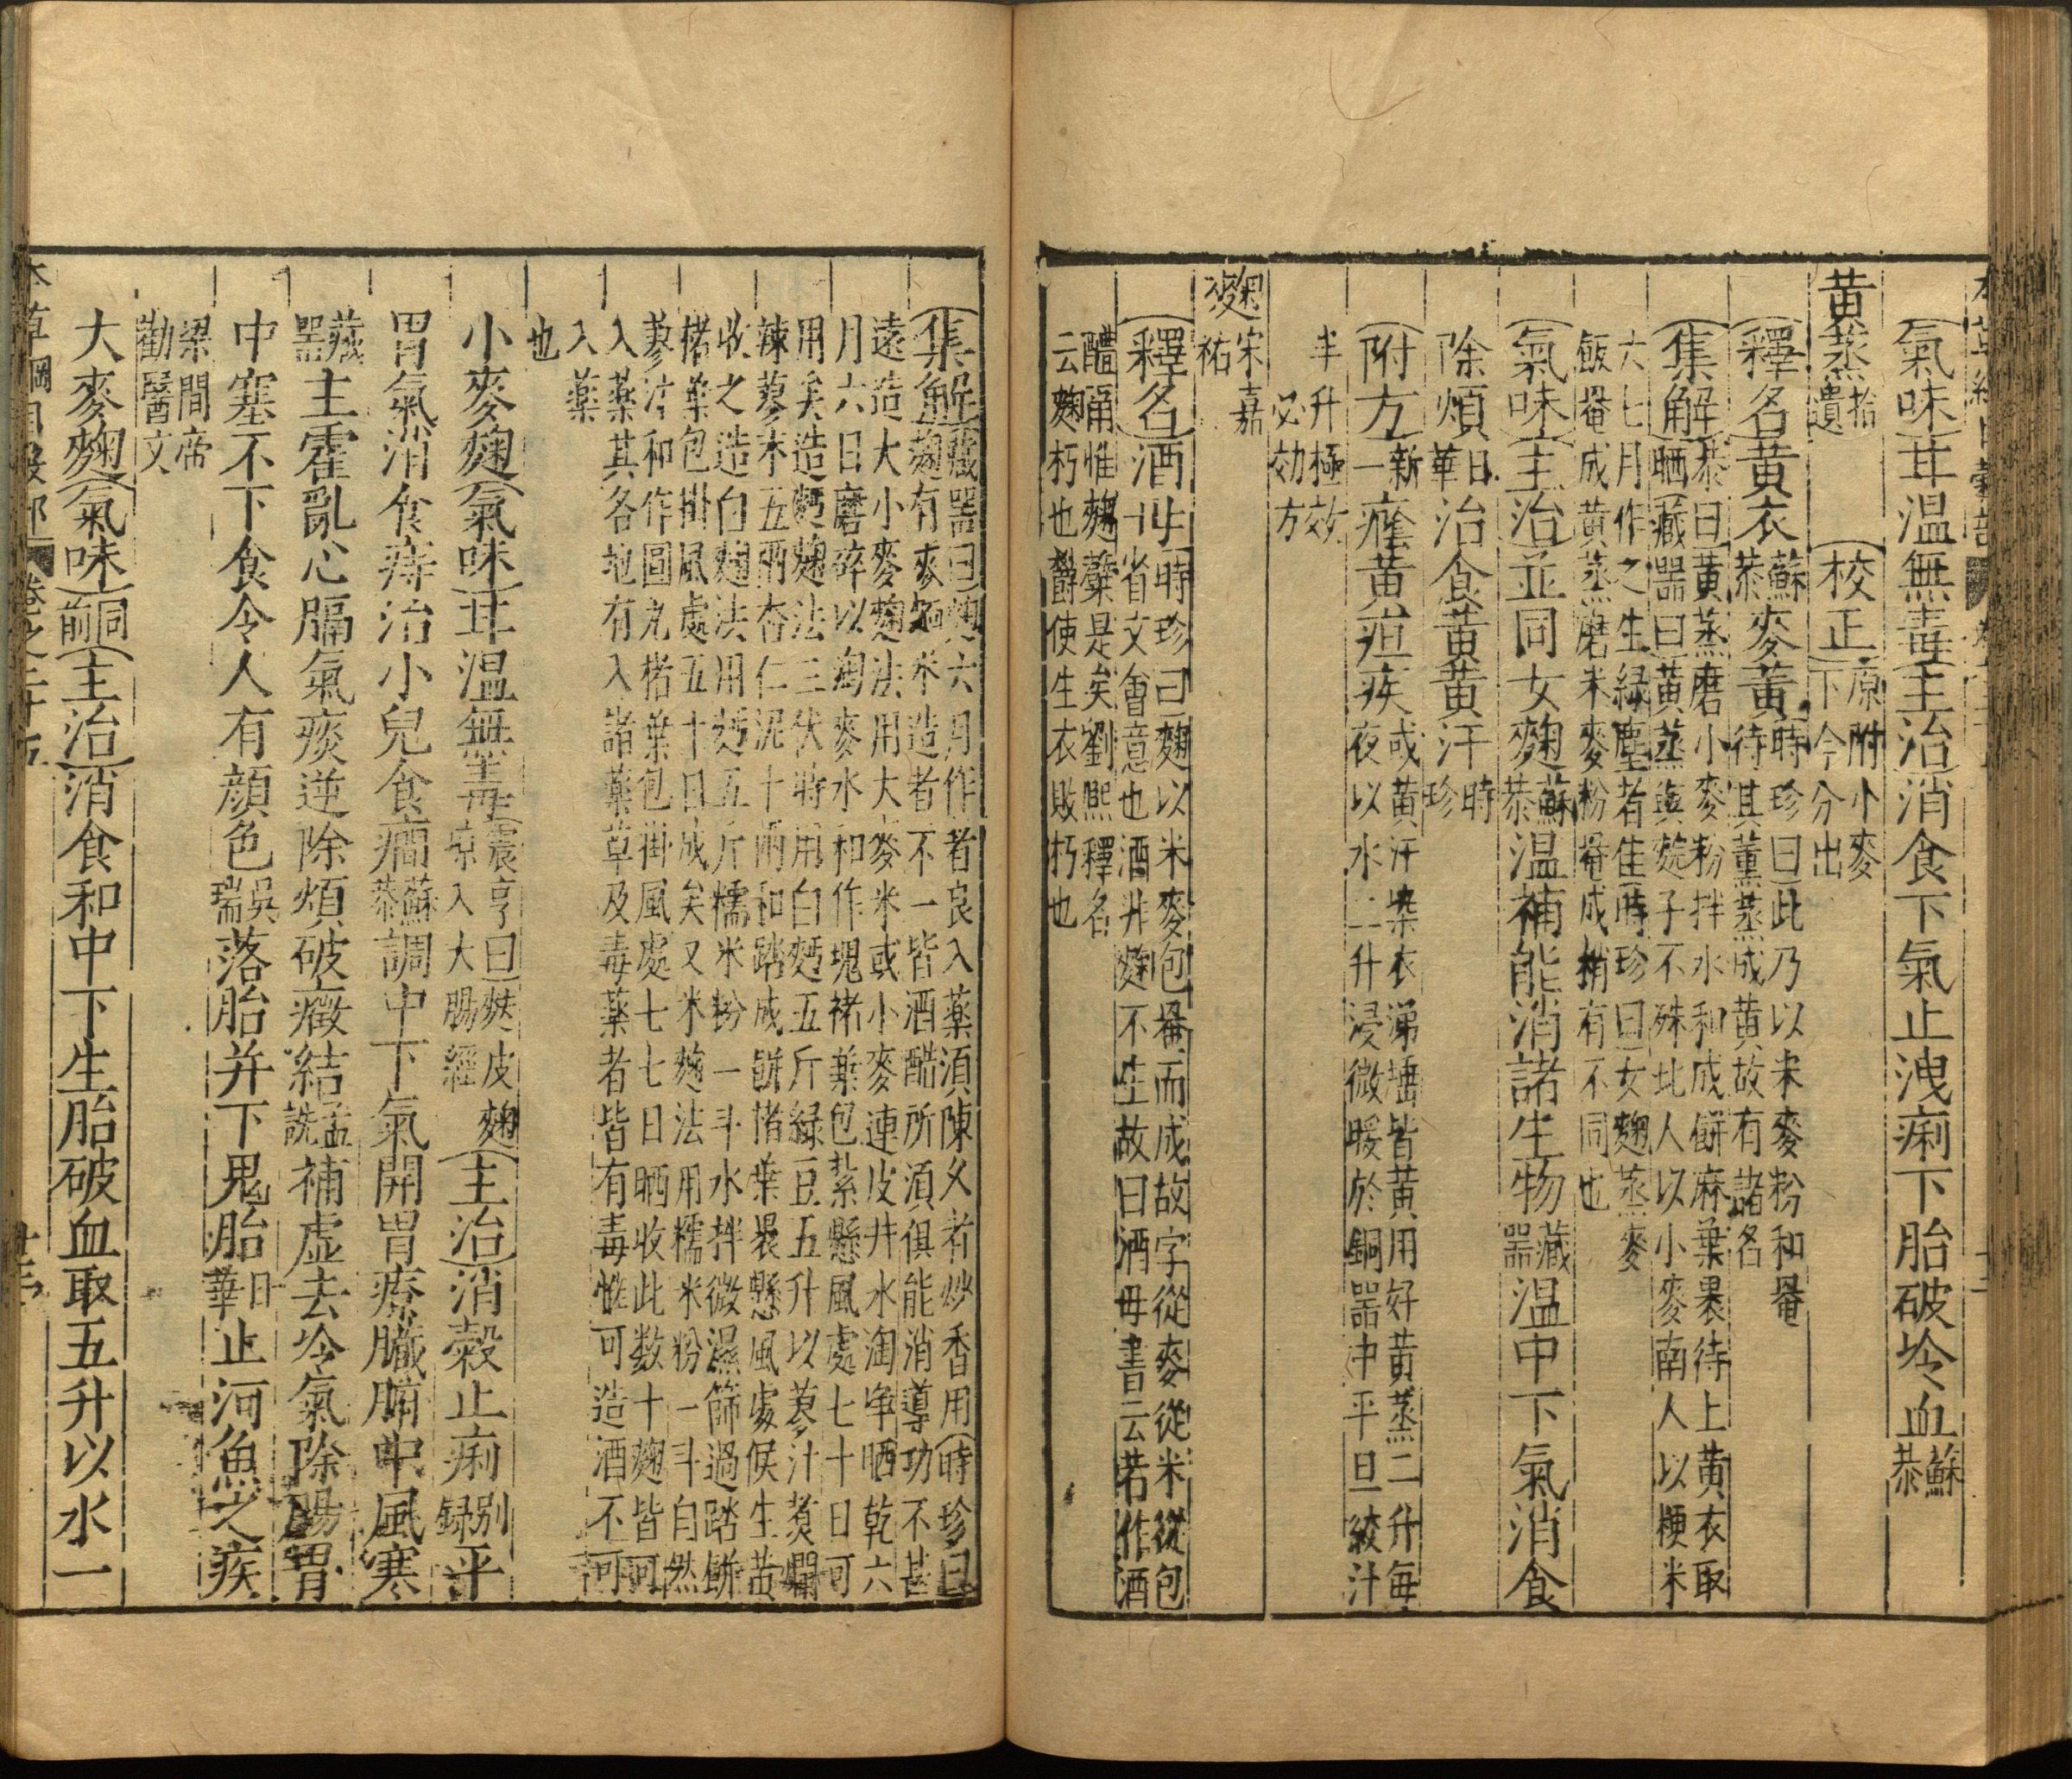 氣味甘温無毒主治消食下氣止洩痢下胎破冷血蘇恭
黄蒸拾遺 校正原附小麥下今分出
釋名黄衣蘇恭麥黄時珍曰此乃以米麥粉和罨待其薰蒸成黄故有諸名
集解恭曰黄蒸磨小麥粉拌水和成餅麻葉裹待上黄衣取晒藏器曰黄蒸與䴷子不殊北人以小麥南人以粳米
六七月作之生緑塵者佳時珍曰女麴蒸麥飯罨成黄蒸磨米麥粉罨成稍有不同也
氣味主治並同女麴蘇恭温補能消諸生物藏器温中下氣消食
除煩日華治食黄黄汗時珍
附方新一癊黄疸疾或黄汗染衣涕唾皆黄用好黄蒸二升每夜以水二升浸微暖於銅器中平旦絞汁
半升極效必効方
麴宋嘉祐
釋名酒母時珍曰麴以米麥包罨而成故字從麥從米從包省文會意也酒非麴不生故曰酒母書云若作酒
醴爾惟麴糵是矣劉熙釋名云麴朽也鬱使生衣敗朽也
集解藏器曰麴六月作者良入藥須陳久者炒香用時珍曰麴有麥麪米造者不一皆酒醋所須俱能消導功不甚
遠造大小麥麴法用大麥米或小麥連皮井水淘净晒乾六月六日磨碎以淘麥水和作塊楮葉包紮懸風處七十日可
用矣造麪麴法三伏時用白麪五斤緑豆五升以蓼汁煑爛辣蓼末五兩杏仁泥十兩和踏成餅楮葉裹懸風處候生黄
收之造白麴法用麪五斤糯米粉一斗水拌微濕篩過踏餅楮葉包掛風處五十日成矣又米麴法用糯米粉一斗自然
蓼汁和作圓丸楮葉包掛風處七七日晒收此数十麴皆可入藥其各地有入諸藥草及毒藥者皆有毒惟可造酒不可
入藥也
小麥麴氣味甘温無毒震亨曰麩皮麴凉入大腸經主治消穀止痢别録平
胃氣消食痔治小兒食癇蘇恭調中下氣開胃療臟腑中風寒
藏器主霍亂心膈氣痰逆除煩破癥結孟詵補虚去冷氣除腸胃
中塞不下食令人有顔色吳瑞落胎并下鬼胎日華止河魚之疾
梁簡帝勸醫文
大麥麴氣味同前主治消食和中下生胎破血取五升以水一
本草綱目穀部 卷之二十五